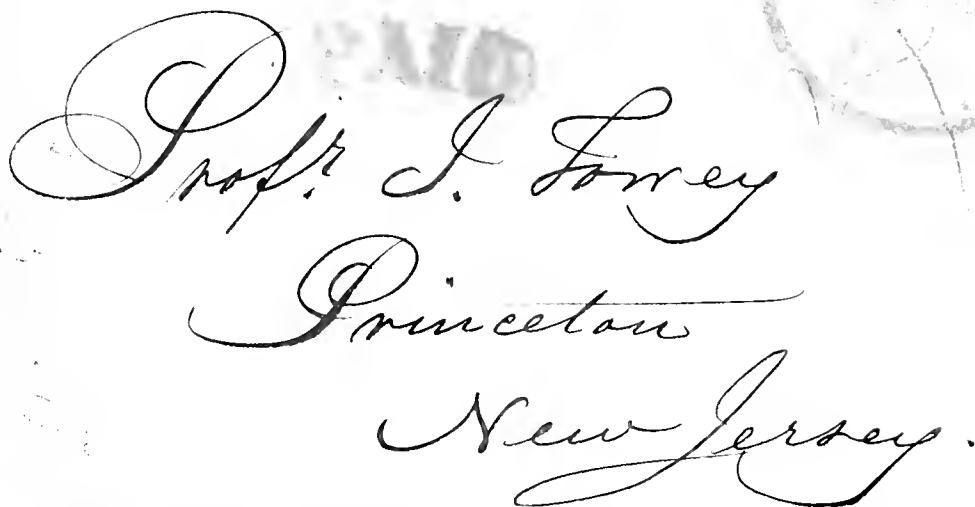 PAID
Profr. J. Torrey
Princeton
New Jersey.